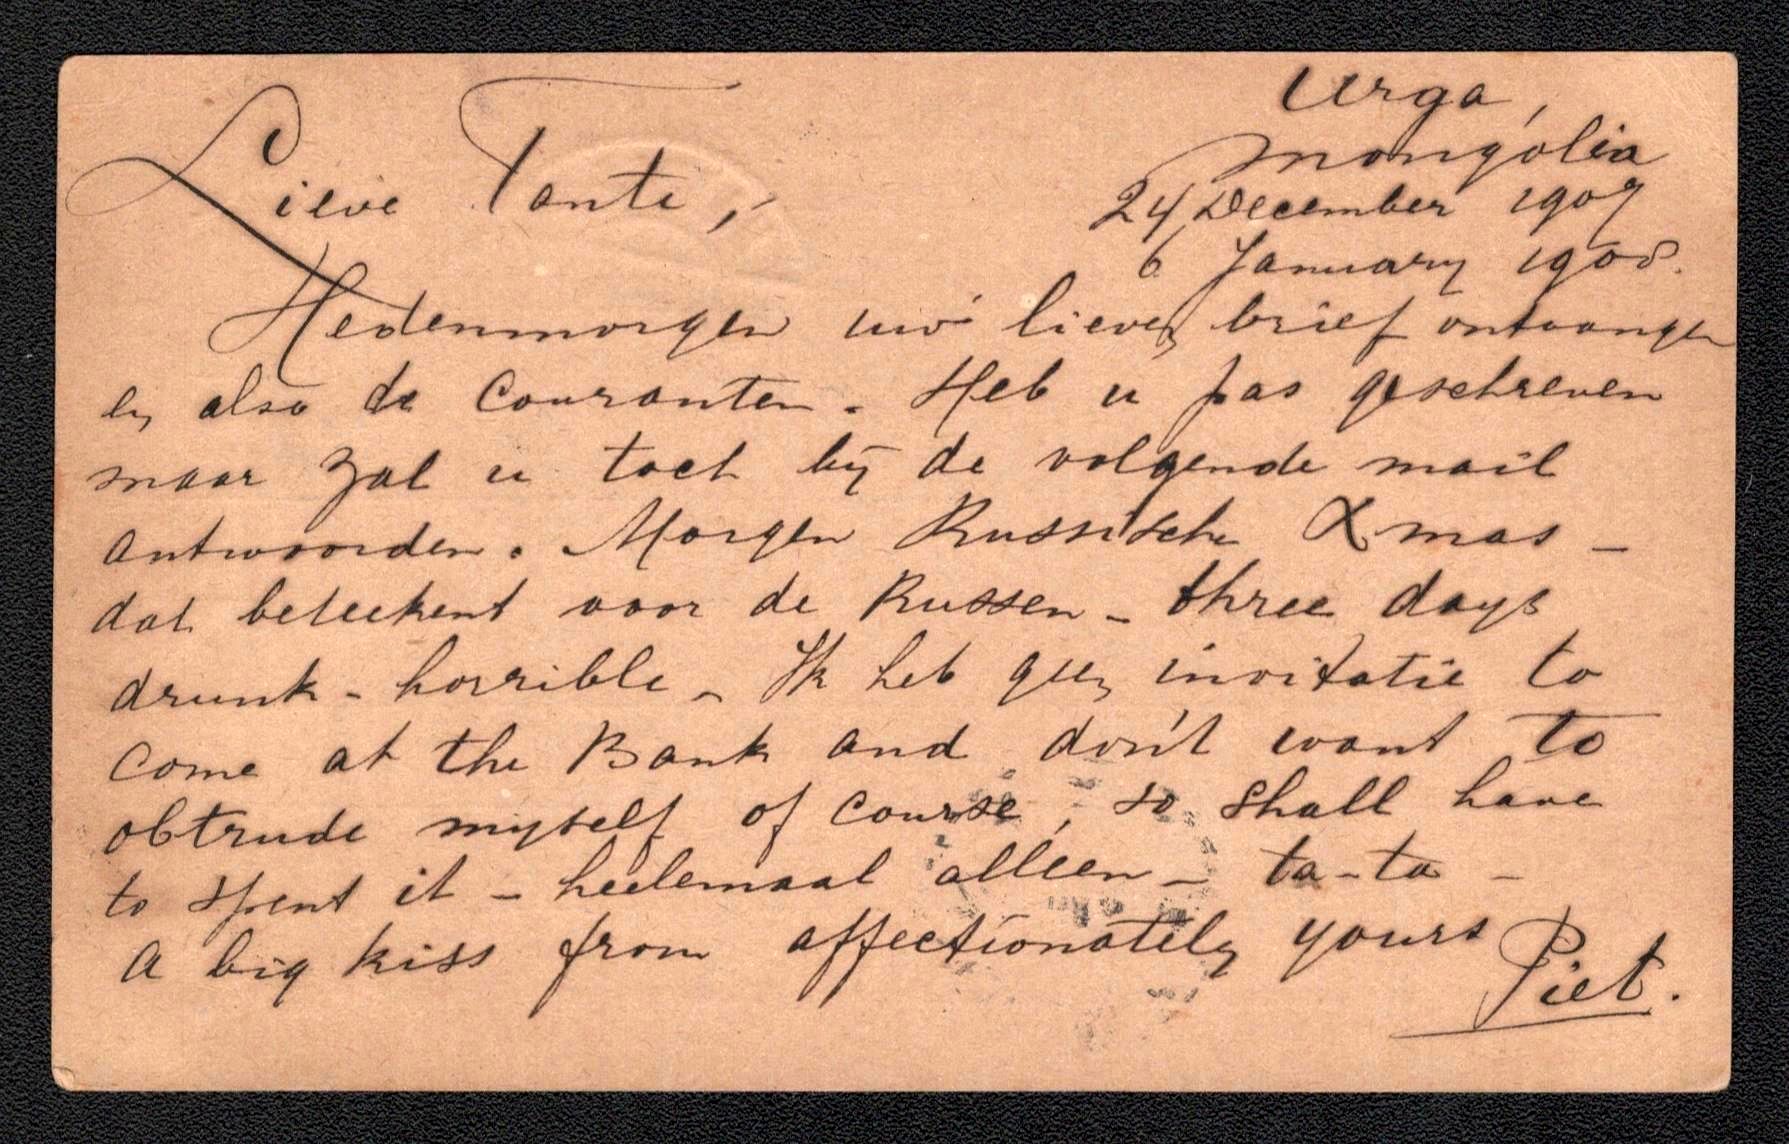 Urga,
Mongolia
24 December 1907
6 January 1908.
Lieve Tante,
Hedenmorgen uw lieven brief ontvangen
en also de Couranten. Heb u pas geschreven
maar zal u toch bij de volgende mail
antwoorden. Morgen Russische Xmas -
dat beteekent voor de Russen - three days
drunk - horrible - Ik heb geen invitatie to
come at the Bank and don't want to
obtrude myself of course, so shall have
to spent it - heelemaal alleen - ta-ta -
A big kiss from affectionately yours
Piet.